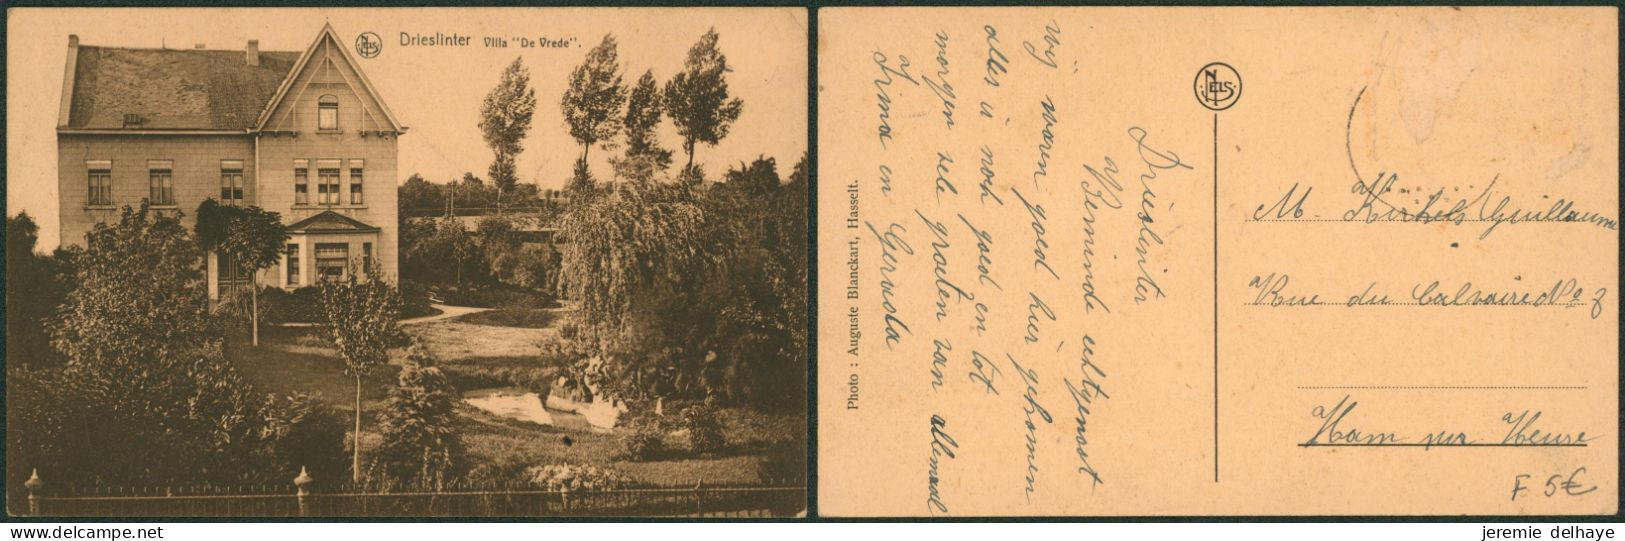 NELS
Drieslinter Villa "De Vrede".
Drieslinter
Beminde echtgenoot
wij waren goed hier gekomen
alles is noch goed en tot
morgen vele groeten van allemaal
Irma en Gerarda
Photo : Auguste Blanckart, Hasselt.
NELS
M. Kirkels Guillaume
Rue du Calvaire No 8
Ham sur Heure
F 5€
jeremie delhaye